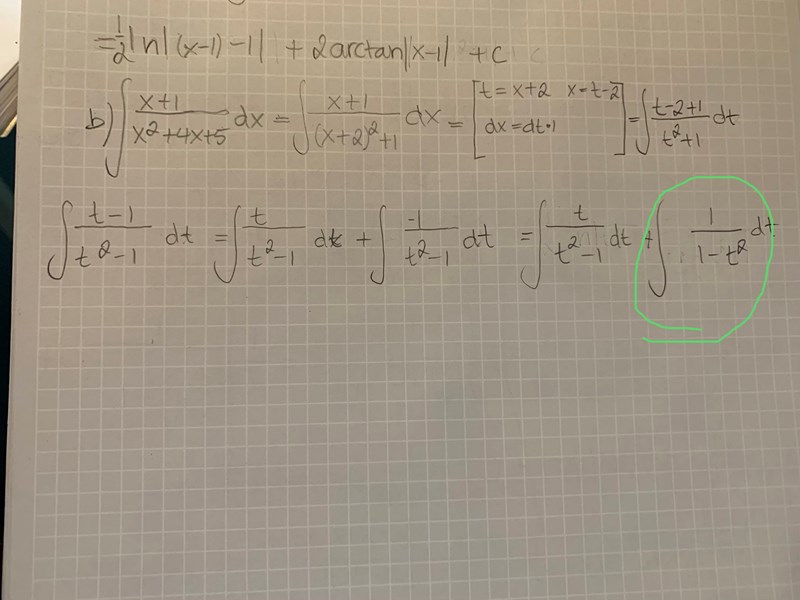 =1/2 ln|(x-1)-1| + 2arctan|x-1| + C
b) ∫ (x+1)/(x²+4x+5) dx = ∫ (x+1)/((x+2)²+1) dx = [t=x+2 x=t-2 dx=dt·1] = ∫ (t-2+1)/(t²+1) dt
∫ (t-1)/(t²-1) dt = ∫ t/(t²-1) dt + ∫ -1/(t²-1) dt = ∫ t/(t²-1) dt + ∫ 1/(1-t²) dt